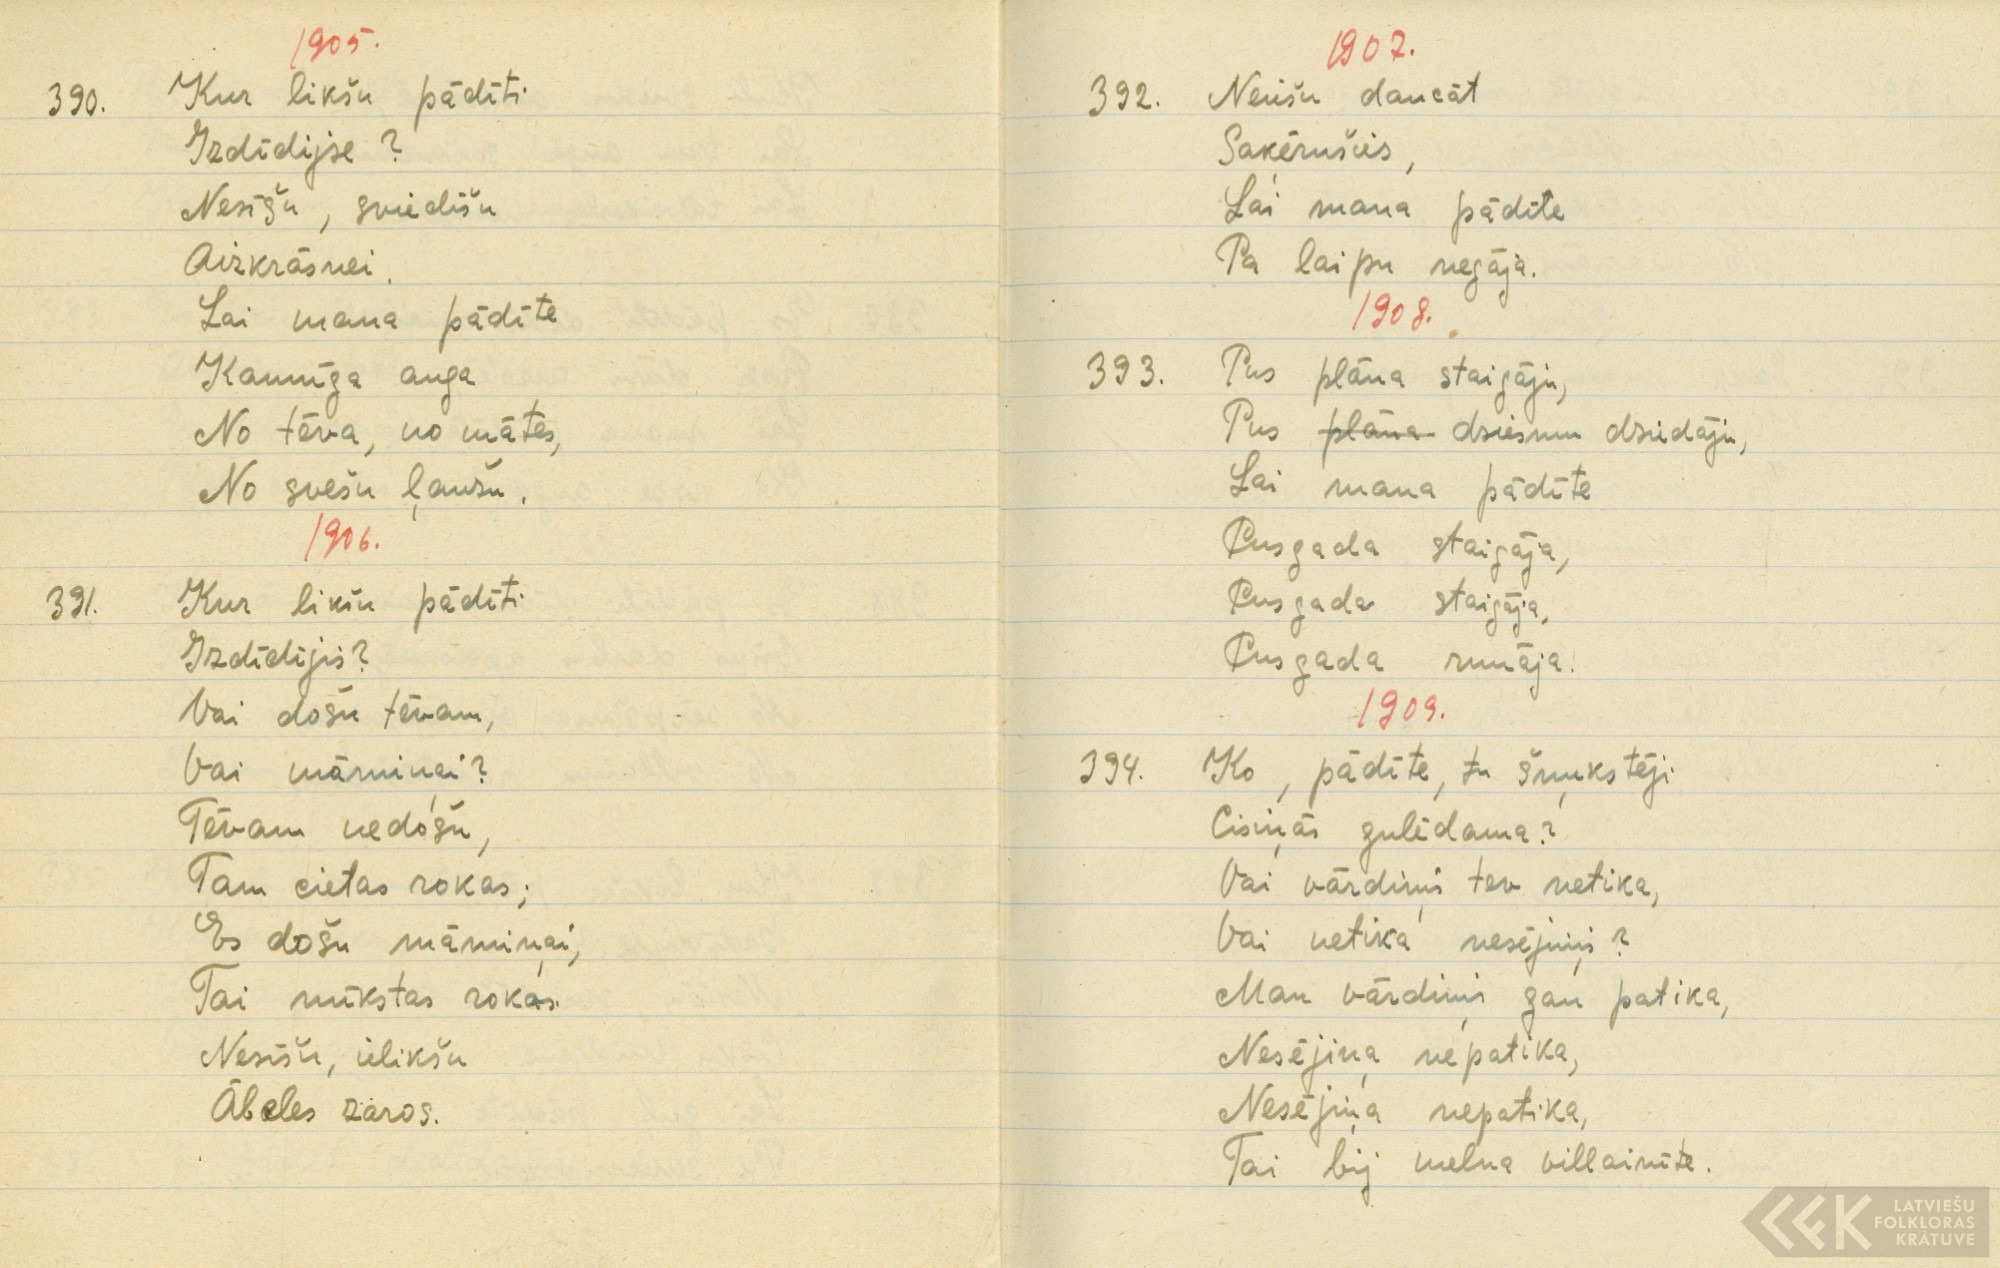 1905.
390. Kur likšu pādīti
Izdīdijse?
Nesīšu, sviedīšu
Aizkrāsnei.
Lai mana pādīte
Kaunīga auga
No tēva, no mātes,
No svešu ļaužu.
1906.
391. Kur likšu pādīti
Izdīdījis?
Vai došu tēvam,
Vai māmiņai?
Tēvam nedošu,
Tam cietas rokas;
Es došu māmiņai,
Tai mīkstas rokas.
Nesīšu, ielikšu
Ābeles zaros.
1907.
392. Neiešu dancāt
Saķērušies,
Lai mana pādīte
Pa laipu negāja.
1908.
393. Pus plāna staigāju,
Pus plāna dziesmu dziedāju,
Lai mana pādīte
Pusgada staigāja,
Pusgada staigāja,
Pusgada runāja.
1909.
394. Ko, pādīte, tu šņukstēji
Cisiņās gulēdama?
Vai vārdiņš tev netika,
Vai netika nesējiņš?
Man vārdiņš gan patika,
Nesējiņa nepatika,
Nesējiņa nepatika,
Tai bij melna villainīte.
LATVIEŠU
FOLKLORAS
KRĀTUVE